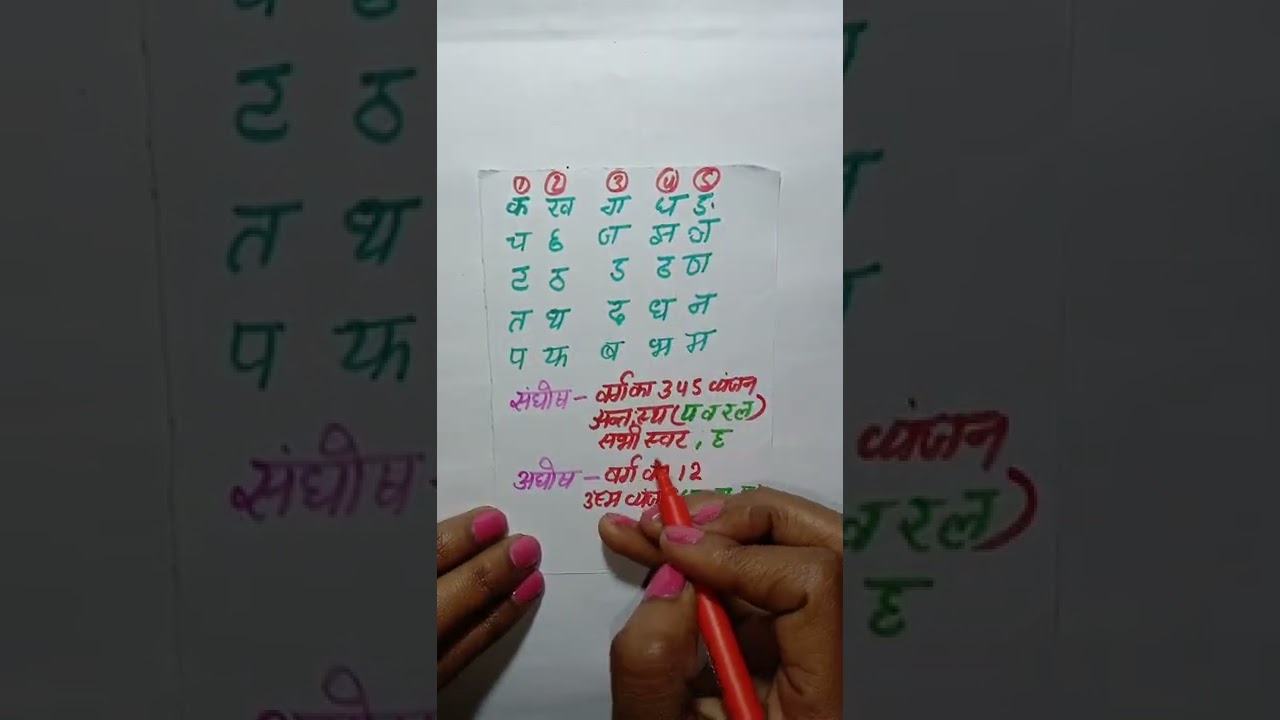 ① ② ③ ④ ⑤
क ख ग घ ङ
च छ ज झ ञ
ट ठ ड ढ ण
त थ द ध न
प फ ब भ म
संघोष – वर्ग का 3 4 5 व्यंजन
अन्तःस्थ (य व र ल)
सभी स्वर, ह
अघोष – वर्ग का 1 2
उष्म व्यंजन